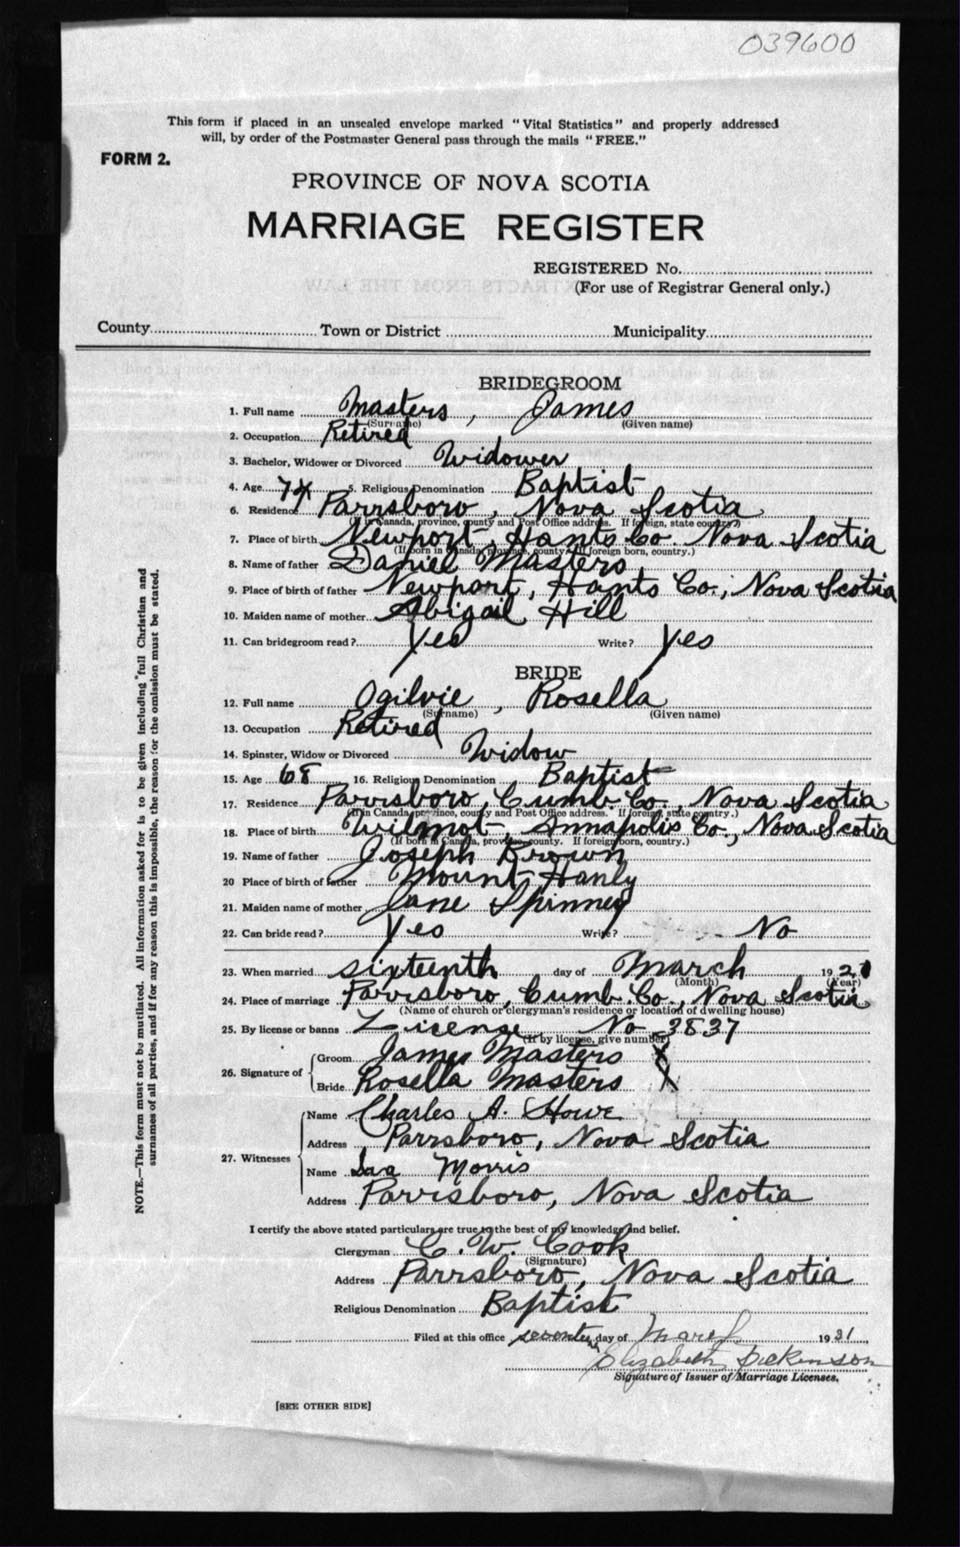 039600
This form if placed in an unsealed envelope marked "Vital Statistics" and properly addressed
will, by order of the Postmaster General pass through the mails "FREE."
FORM 2.
PROVINCE OF NOVA SCOTIA
MARRIAGE REGISTER
REGISTERED No.
(For use of Registrar General only.)
County Town or District Municipality
BRIDEGROOM
1. Full name Masters, James
(Surname) (Given name)
2. Occupation Retired
3. Bachelor, Widower or Divorced Widower
4. Age 74 5. Religious Denomination Baptist
6. Residence Parrsboro, Nova Scotia
(If in Canada, province, county and Post Office address. If foreign, state country.)
7. Place of birth Newport, Hants Co. Nova Scotia
(If born in Canada, province, county. If foreign born, country.)
8. Name of father Daniel Masters
9. Place of birth of father Newport, Hants Co., Nova Scotia
10. Maiden name of mother Abigail Hill
11. Can bridegroom read? Yes Write? Yes
BRIDE
12. Full name Ogilvie, Rosella
(Surname) (Given name)
13. Occupation Retired
14. Spinster, Widow or Divorced Widow
15. Age 68 16. Religious Denomination Baptist
17. Residence Parrsboro, Cumb. Co., Nova Scotia
(If in Canada, province, county and Post Office address. If foreign, state country.)
18. Place of birth Wilmot, Annapolis Co., Nova Scotia
(If born in Canada, province, county. If foreign born, country.)
19. Name of father Joseph Brown
20 Place of birth of father Mount Hanly
21. Maiden name of mother Jane Spinney
22. Can bride read? Yes Write? No
23. When married sixteenth day of March 19
(Month) (Year)
24. Place of marriage Parrsboro, Cumb. Co., Nova Scotia
(Name of church or clergyman's residence or location of dwelling house)
25. By license or banns License No 3837
(If by license, give number)
26. Signature of
Groom James Masters X
Bride Rosella Masters X
27. Witnesses
Name Charles A. Howe
Address Parrsboro, Nova Scotia
Name Morris
Address Parrsboro, Nova Scotia
I certify the above stated particulars are true to the best of my knowledge and belief.
Clergyman C. W. Cook
(Signature)
Address Parrsboro, Nova Scotia
Religious Denomination Baptist
Filed at this office day of March 1921
Elizabeth Dickinson
Signature of Issuer of Marriage Licenses.
[SEE OTHER SIDE]
NOTE.—This form must not be mutilated. All information asked for is to be given including full Christian and
surnames of all parties, and if for any reason this is impossible, the reason for the omission must be stated.